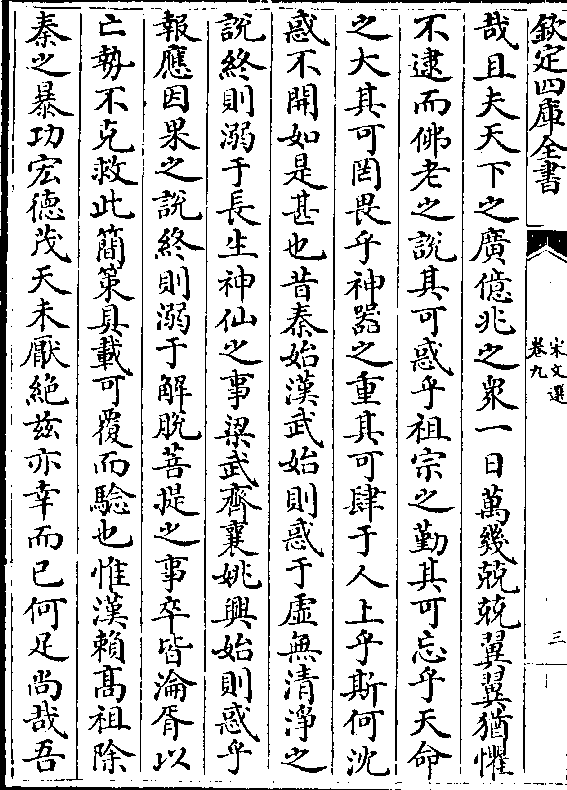 欽定四庫全書
宋文選
卷九
三
哉且夫天下之廣億兆之衆一日萬幾兢兢翼翼猶懼
不逮而佛老之說其可惑乎祖宗之勤其可忘乎天命
之大其可罔畏乎神器之重其可肆于人上乎斯何沈
惑不開如是甚也昔秦始漢武始則惑于虛無清淨之
說終則溺于長生神仙之事梁武齊襄姚興始則惑乎
報應因果之說終則溺于解脫菩提之事卒皆淪胥以
亡勢不克救此簡策具載可覆而驗也惟漢賴髙祖除
秦之暴功宏德茂天未厭絶兹亦幸而已何足尚哉吾